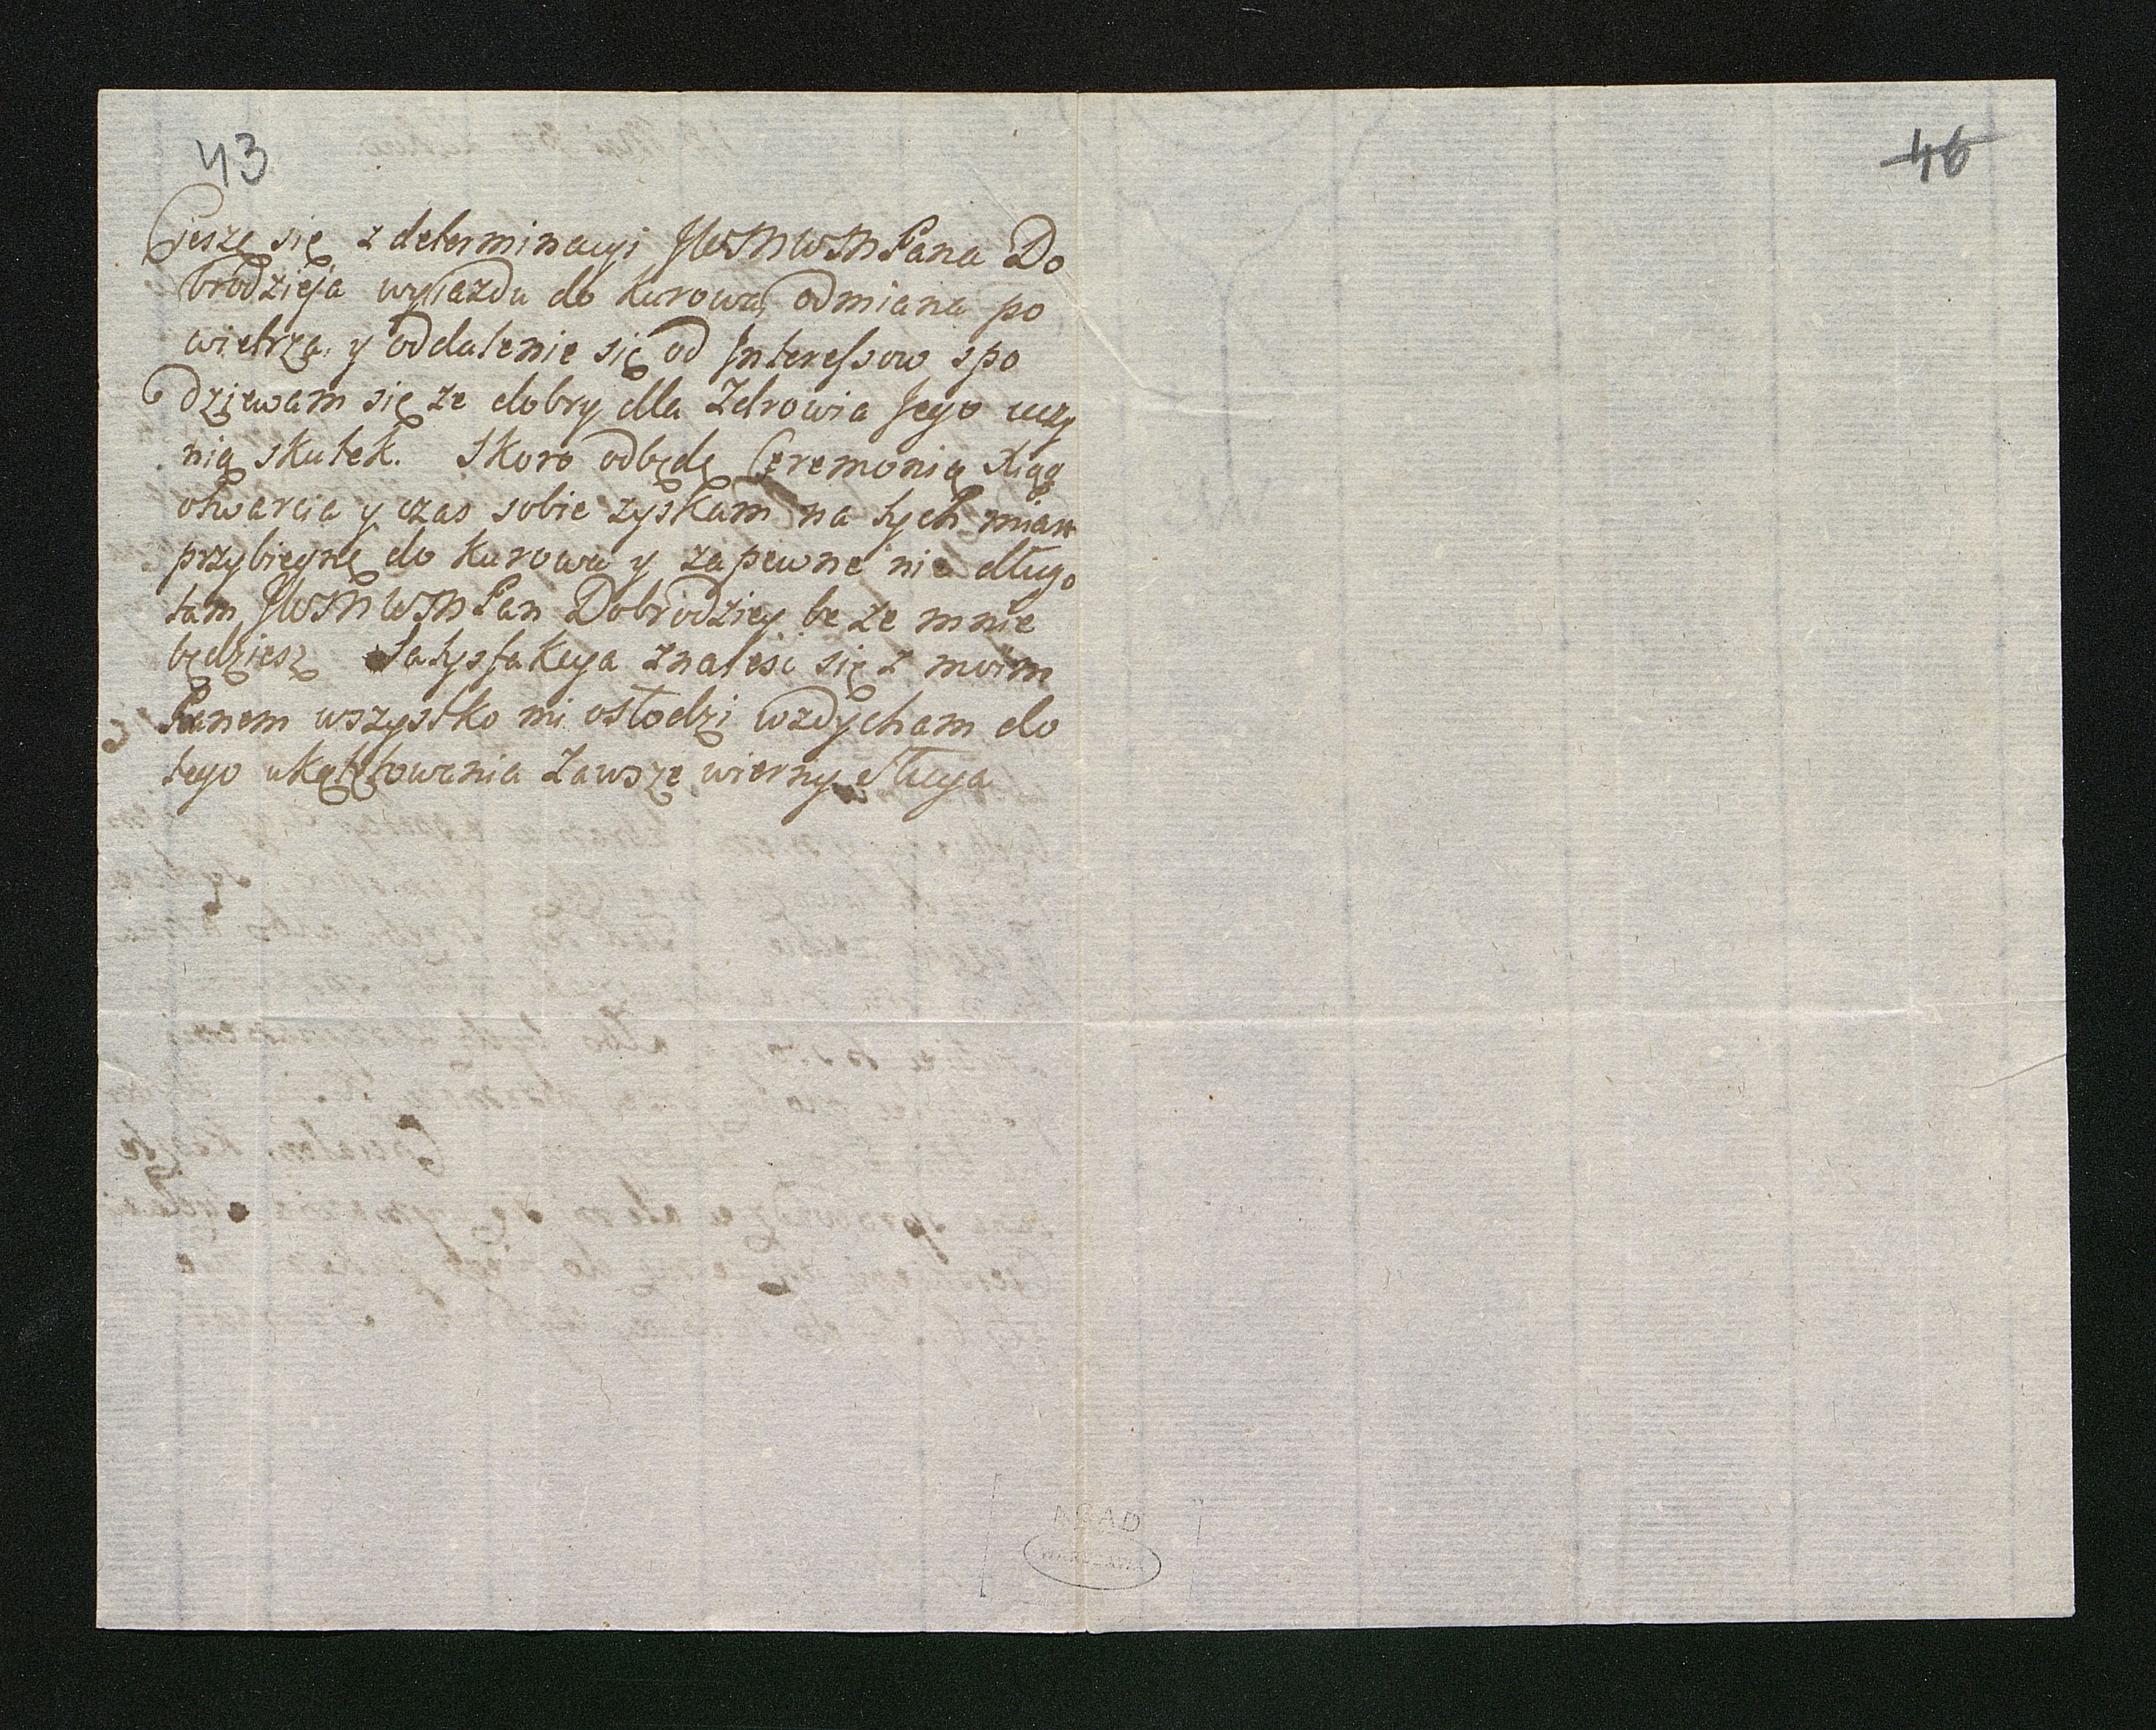 43
46
Cieszę się z determinacyi JWWMWM Pana Do
brodzieja wyiazdu do Kurowa, odmiana po
wietrza, y oddalenie się od Interessow spo
dziewam się że dobry dla Zdrowia Jego uczy
nią skutek. Skoro odbędę Ceremonią Xiąg
otwarcia y czas sobie zyskam na tych miast
przybiegnę do Kurowa y zapewne nie długo
tam JWWMWM Pan Dobrodziey be ze mnie
będziesz Satysfakcya znaleść się z moim
Panem wszystko mi osłodzi wzdycham do
tego ukątętowania Zawsze wierny Sługa
AGAD
WARSZAWA